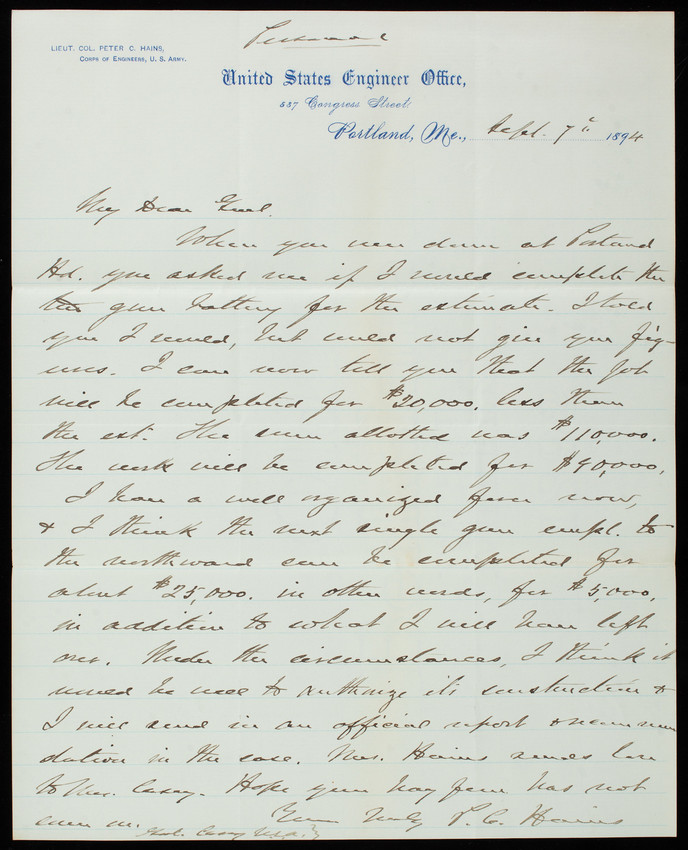 LIEUT. COL. PETER C. HAINS,
CORPS OF ENGINEERS, U. S. ARMY.
Personal
United States Engineer Office,
537 Congress Street
Portland, Me., Sept. 7th 1894
My Dear Genl.
When you were down at Portland
Hd. you asked me if I would complete the
the gun battery for the estimate. I told
you I would, but would not give you fig-
ures. I can now tell you that the job
will be completed for $20,000. less than
the est. The sum allotted was $110,000.
The work will be completed for $90,000,
I have a well organized force now,
& I think the next single gun empl. to
the northward can be completed for
about $25,000. in other words, for $5,000,
in addition to what I will have left
over. Under the circumstances, I think it
would be well to authorize its construction &
I will send in an official report & recommen
dation in the case. Mrs. Hains sends love
to Mrs. Casey. Hope your hay fever has not
come on. Yours truly P. C. Hains
Genl. Casey U.S.A.